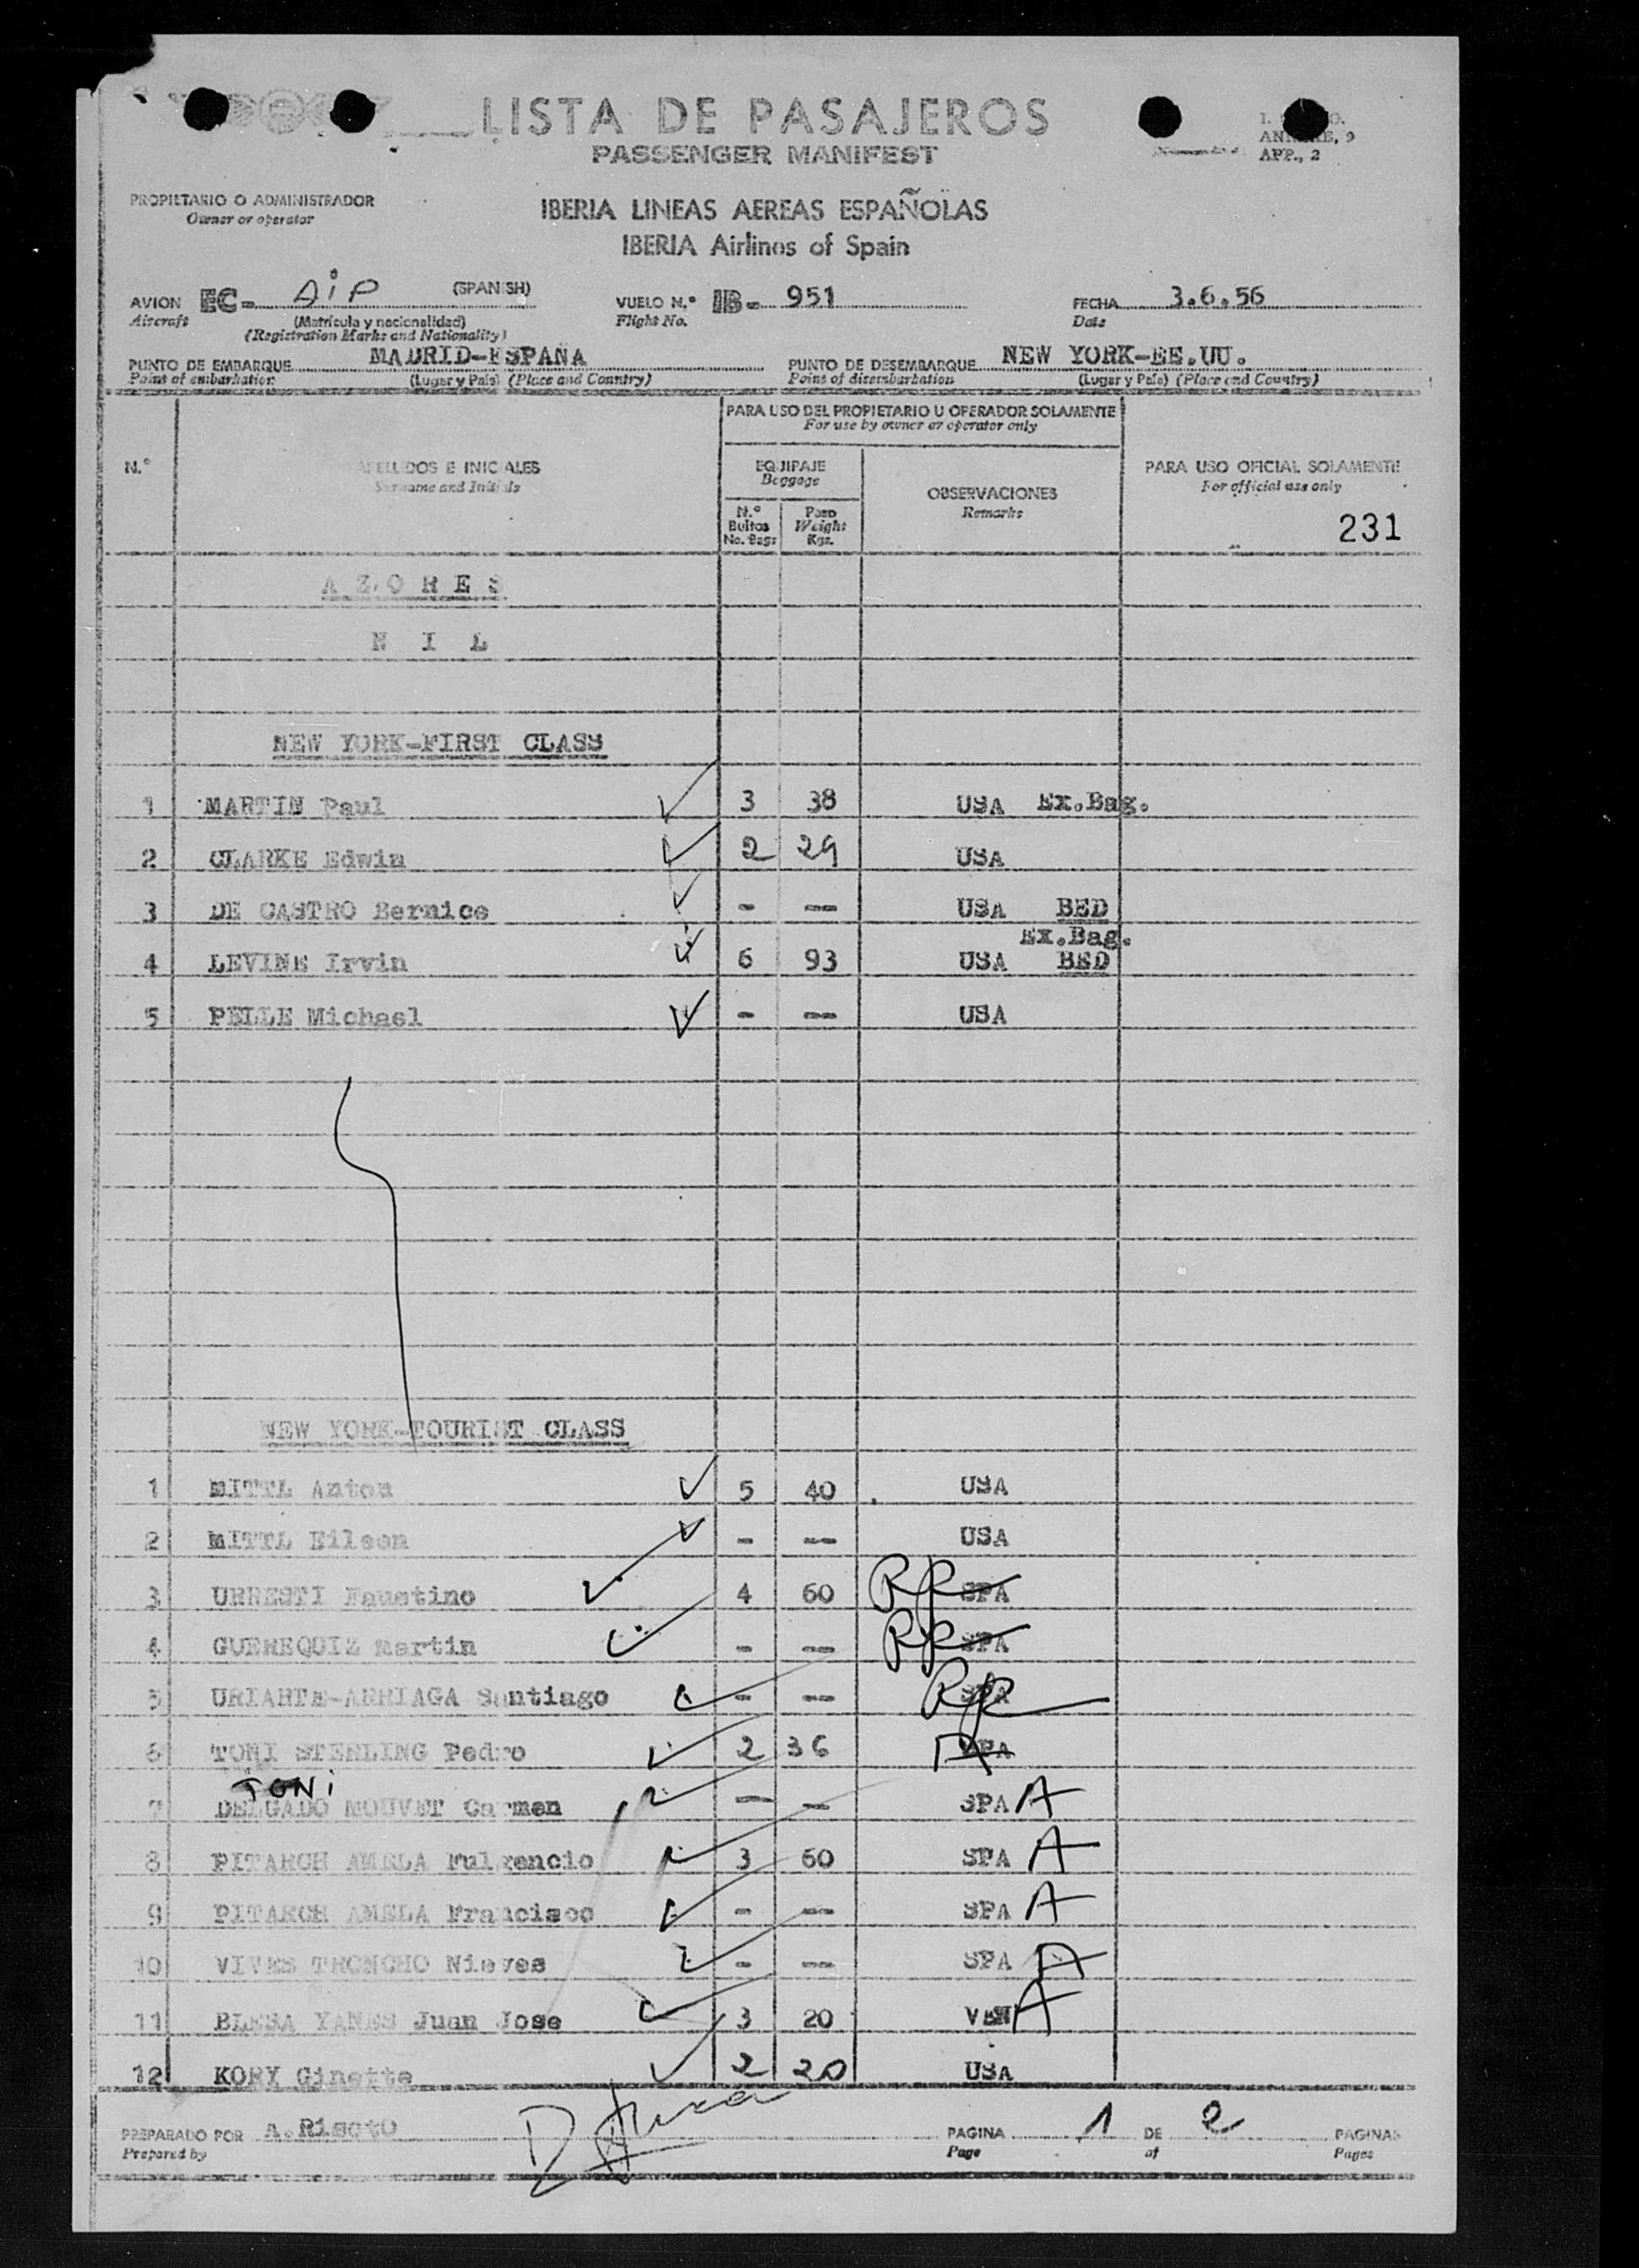 LISTA DE PASAJEROS
PASSENGER MANIFEST
I. O.
9
APP., 2
PROPIETARIO O ADMINISTRADOR
Owner or operator
IBERIA LINEAS AEREAS ESPAÑOLAS
IBERIA Airlines of Spain
AVION EC- AiP (SPANISH) VUELO N.° IB- 951 FECHA 3.6.56
Aircraft (Matrícula y nacionalidad) Flight No. Date
(Registration Marks and Nationality)
PUNTO DE EMBARQUE MADRID-ESPAÑA PUNTO DE DESEMBARQUE NEW YORK-EE.UU.
Point of embarkation (Lugar y País) (Place and Country) Point of disembarkation (Lugar y País) (Place and Country)
PARA USO DEL PROPIETARIO U OPERADOR SOLAMENTE
For use by owner or operator only
N.° APELLIDOS E INICIALES EQUIPAJE OBSERVACIONES PARA USO OFICIAL SOLAMENTE
Surname and Initials Baggage Remarks For official use only
N.° Bultos No. Bags Peso Weight Kgs. 231
AZORES
NIL
NEW YORK-FIRST CLASS
1 MARTIN Paul 3 38 USA Ex.Bag.
2 CLARKE Edwin 2 29 USA
3 DE CASTRO Bernice - -- USA BED
Ex.Bag.
4 LEVINE Irvin 6 93 USA BED
5 PELLE Michael - -- USA
NEW YORK-TOURIST CLASS
1 MITTL Anton 5 40 USA
2 MITTL Eileen - -- USA
3 URRESTI Faustino 4 60 RP SPA
4 GUERREQUIZ Martin - -- RP SPA
5 URIARTE-ARRIAGA Santiago - -- RP SPA
6 TONI STERLING Pedro 2 36 A SPA
TONi
7 DELGADO MOUVET Carmen - -- SPA A
8 PITARCH AMELA Fulgencio 3 60 SPA A
9 PITARCH AMELA Francisco - -- SPA A
10 VIVES TRONCHO Nieves - -- SPA A
11 BLESA YANES Juan Jose 3 20 VEN A
12 KORY Ginette 2 20 USA
PREPARADO POR A.Risoto PAGINA 1 DE 2 PAGINAS
Prepared by Page of Pages